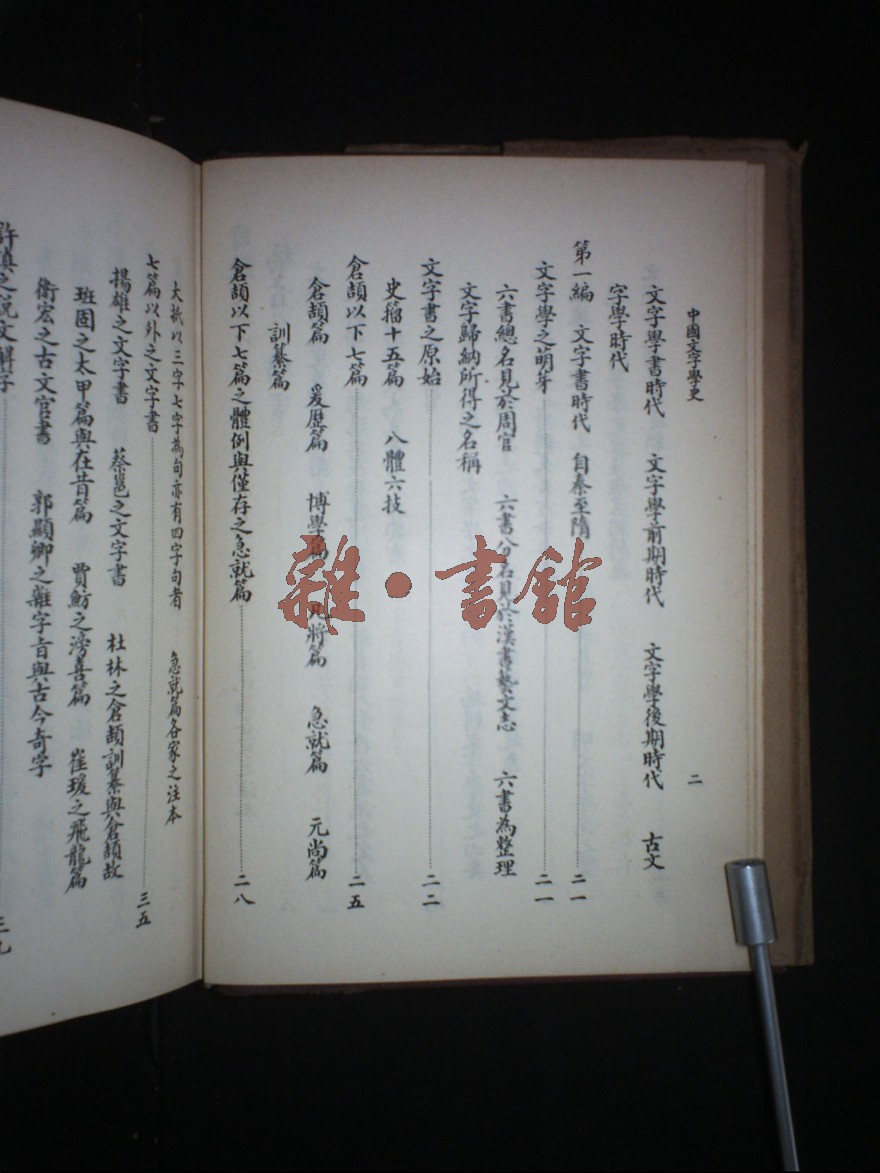 中國文字學史
二
文字學書時代 文字學前期時代 文字學後期時代 古文
字學時代
第一編 文字書時代 自秦至隋 二一
文字學之萌芽 二一
六書總名見於周官 六書分名見於漢書藝文志 六書為整理
文字歸納所得之名稱
文字書之原始 二二
史籀十五篇 八體六技
倉頡以下七篇 二五
倉頡篇 爰歷篇 博學篇 凡將篇 急就篇 元尚篇
訓纂篇
倉頡以下七篇之體例與僅存之急就篇 二八
大抵以三字七字為句亦有四字句者 急就篇各家之注本
七篇以外之文字書 三五
揚雄之文字書 蔡邕之文字書 杜林之倉頡訓纂與倉頡故
班固之太甲篇與在昔篇 賈魴之滂喜篇 崔瑗之飛龍篇
衛宏之古文官書 郭顯卿之雜字旨與古今奇字
許慎之說文解字 三九
雜·書館